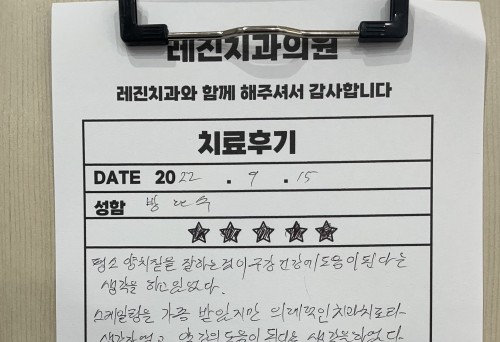 레진치과의원
레진치과와 함께 해주셔서 감사합니다
치료후기
DATE 2022 . 9 . 15
성함 방대수
평소 양치질을 잘하는것이 구강건강에 도움이 된다는
생각을 하고 있었다.
스케일링을 가끔 받았지만 의례적인 치과치료라
생각하였고